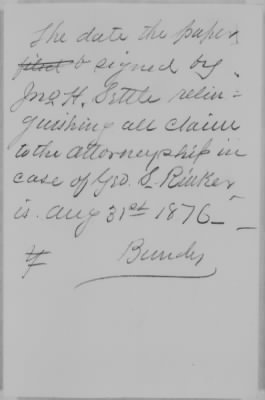 The date the paper
filed & signed by
Jno H. Settle relin=
quishing all claim
to the attorneyship in
case of Geo. L. Rinker
is. Aug 31st 1876—
Bundy